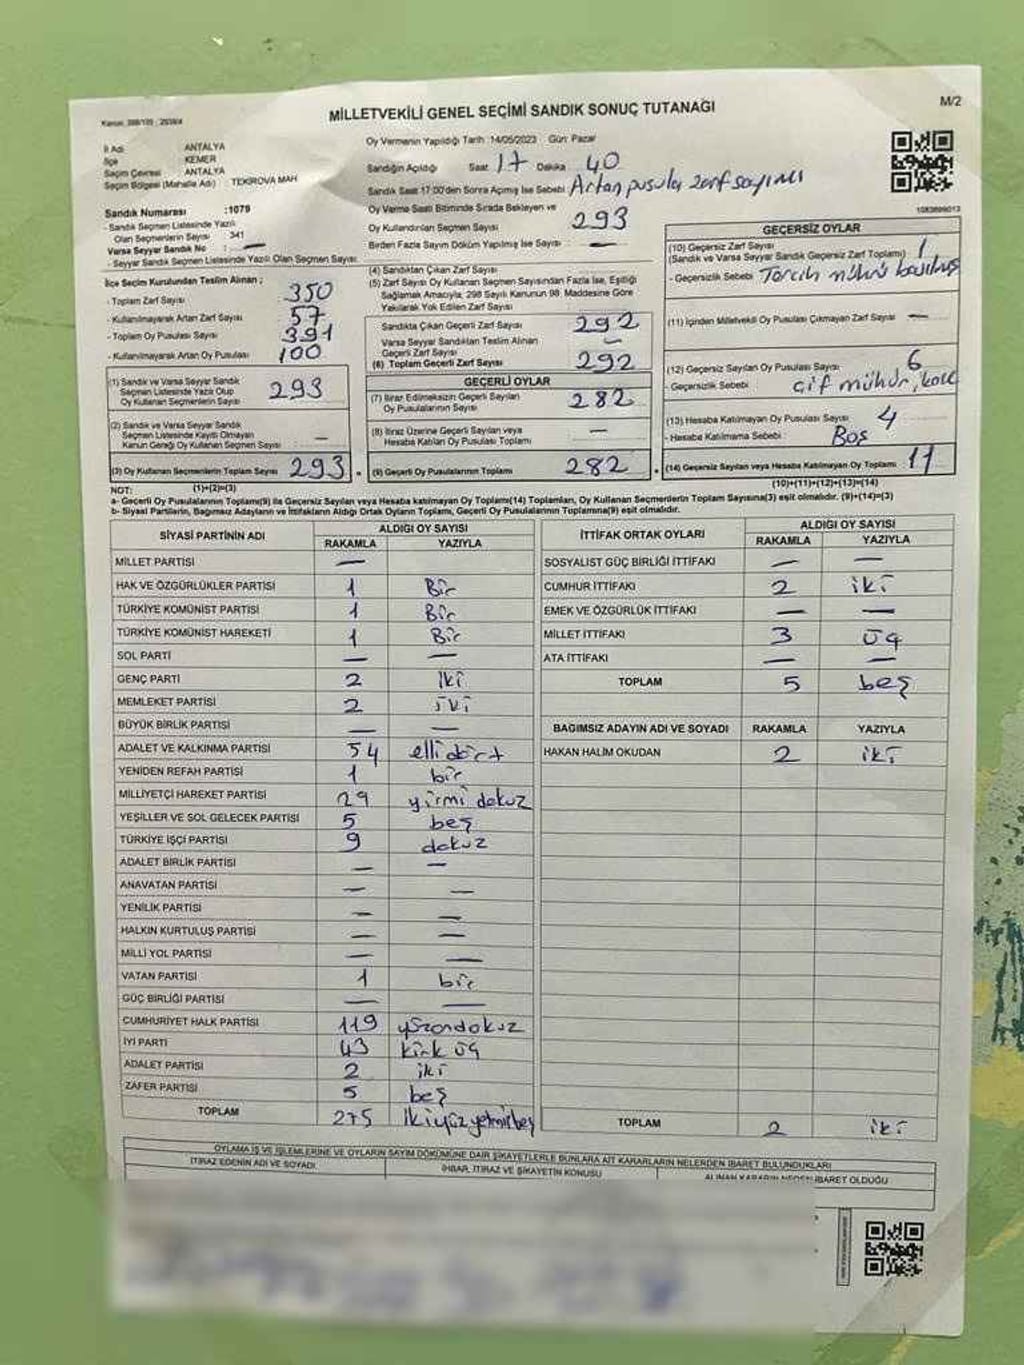 MİLLETVEKİLİ GENEL SEÇİMİ SANDIK SONUÇ TUTANAĞI
M/2
İl Adı ANTALYA
İlçe KEMER
Seçim Çevresi ANTALYA
Seçim Bölgesi (Mahalle Adı) TEKIROVA MAH
Sandık Numarası :1079
- Sandık Seçmen Listesinde Yazılı
Olan Seçmenlerin Sayısı : 341
Varsa Seyyar Sandık No : —
- Seyyar Sandık Seçmen Listesinde Yazılı Olan Seçmen Sayısı:
Oy Vermenin Yapıldığı Tarih :14/05/2023 Gün: Pazar
Sandığın Açıldığı Saat 17 Dakika 40
Sandık Saat 17:00'den Sonra Açılmış İse Sebebi: Artan pusula zarf sayımı
Oy Verme Saati Bitiminde Sırada Bekleyen ve
Oy Kullandırılan Seçmen Sayısı: 293
Birden Fazla Sayım Döküm Yapılmış İse Sayısı: —
İlçe Seçim Kurulundan Teslim Alınan ;
- Toplam Zarf Sayısı 350
- Kullanılmayarak Artan Zarf Sayısı 57
- Toplam Oy Pusulası Sayısı 391
- Kullanılmayarak Artan Oy Pusulası 100
(1) Sandık ve Varsa Seyyar Sandık
Seçmen Listesinde Yazılı Olup
Oy Kullanan Seçmenlerin Sayısı 293
(2) Sandık ve Varsa Seyyar Sandık
Seçmen Listesinde Kayıtlı Olmayan
Kanun Gereği Oy Kullanan Seçmen Sayısı —
(3) Oy Kullanan Seçmenlerin Toplam Sayısı 293
(4) Sandıktan Çıkan Zarf Sayısı
(5) Zarf Sayısı Oy Kullanan Seçmen Sayısından Fazla İse, Eşitliği
Sağlamak Amacıyla, 298 Sayılı Kanunun 98. Maddesine Göre
Yakılarak Yok Edilen Zarf Sayısı
Sandıkta Çıkan Geçerli Zarf Sayısı 292
Varsa Seyyar Sandıktan Teslim Alınan
Geçerli Zarf Sayısı —
(6) Toplam Geçerli Zarf Sayısı 292
GEÇERLİ OYLAR
(7) İtiraz Edilmeksizin Geçerli Sayılan
Oy Pusulalarının Sayısı 282
(8) İtiraz Üzerine Geçerli Sayılan veya
Hesaba Katılan Oy Pusulası Toplamı —
(9) Geçerli Oy Pusulalarının Toplamı 282
GEÇERSİZ OYLAR
(10) Geçersiz Zarf Sayısı
(Sandık ve Varsa Seyyar Sandık Geçersiz Zarf Toplamı) 1
- Geçersizlik Sebebi Tercih mührü basılmış
(11) İçinden Milletvekili Oy Pusulası Çıkmayan Zarf Sayısı —
(12) Geçersiz Sayılan Oy Pusulası Sayısı 6
- Geçersizlik Sebebi çif mühür,
(13) Hesaba Katılmayan Oy Pusulası Sayısı 4
- Hesaba Katılmama Sebebi Boş
(14) Geçersiz Sayılan veya Hesaba Katılmayan Oy Toplamı 11
NOT: (1)+(2)=(3)
(10)+(11)+(12)+(13)=(14)
a- Geçerli Oy Pusulalarının Toplamı(9) ile Geçersiz Sayılan veya Hesaba katılmayan Oy Toplamı(14) Toplamları, Oy Kullanan Seçmenlerin Toplam Sayısına(3) eşit olmalıdır. (9)+(14)=(3)
b- Siyasi Partilerin, Bağımsız Adayların ve İttifakların Aldığı Ortak Oyların Toplamı, Geçerli Oy Pusulalarının Toplamına(9) eşit olmalıdır.
SİYASİ PARTİNİN ADI ALDIĞI OY SAYISI
RAKAMLA YAZIYLA
MİLLET PARTİSİ —
HAK VE ÖZGÜRLÜKLER PARTİSİ 1 Bir
TÜRKİYE KOMÜNİST PARTİSİ 1 Bir
TÜRKİYE KOMÜNİST HAREKETİ 1 Bir
SOL PARTİ — —
GENÇ PARTİ 2 iki
MEMLEKET PARTİSİ 2 iki
BÜYÜK BİRLİK PARTİSİ — —
ADALET VE KALKINMA PARTİSİ 54 elli dört
YENİDEN REFAH PARTİSİ 1 bir
MİLLİYETÇİ HAREKET PARTİSİ 29 yirmi dokuz
YEŞİLLER VE SOL GELECEK PARTİSİ 5 beş
TÜRKİYE İŞÇİ PARTİSİ 9 dokuz
ADALET BİRLİK PARTİSİ — —
ANAVATAN PARTİSİ — —
YENİLİK PARTİSİ — —
HALKIN KURTULUŞ PARTİSİ — —
MİLLİ YOL PARTİSİ — —
VATAN PARTİSİ 1 bir
GÜÇ BİRLİĞİ PARTİSİ — —
CUMHURİYET HALK PARTİSİ 119 yüzondokuz
İYİ PARTİ 43 kırk üç
ADALET PARTİSİ 2 iki
ZAFER PARTİSİ 5 beş
TOPLAM 275 ikiyüzyetmişbeş
İTTİFAK ORTAK OYLARI ALDIĞI OY SAYISI
RAKAMLA YAZIYLA
SOSYALİST GÜÇ BİRLİĞİ İTTİFAKI — —
CUMHUR İTTİFAKI 2 iki
EMEK VE ÖZGÜRLÜK İTTİFAKI — —
MİLLET İTTİFAKI 3 üç
ATA İTTİFAKI — —
TOPLAM 5 beş
BAĞIMSIZ ADAYIN ADI VE SOYADI RAKAMLA YAZIYLA
HAKAN HALİM OKUDAN 2 iki
TOPLAM 2 iki
OYLAMA İŞ VE İŞLEMLERİNE VE OYLARIN SAYIM DÖKÜMÜNE DAİR ŞİKAYETLERLE BUNLARA AİT KARARLARIN NELERDEN İBARET BULUNDUKLARI
İTİRAZ EDENİN ADI VE SOYADI
İHBAR, İTİRAZ VE ŞİKAYETİN KONUSU
ALINAN KARARIN NEDEN İBARET OLDUĞU